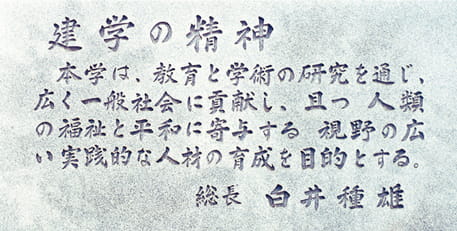 建学の精神
本学は、教育と学術の研究を通じ、
広く一般社会に貢献し、且つ 人類
の福祉と平和に寄与する 視野の広
い実践的な人材の育成を目的とする。
総長 白井種雄